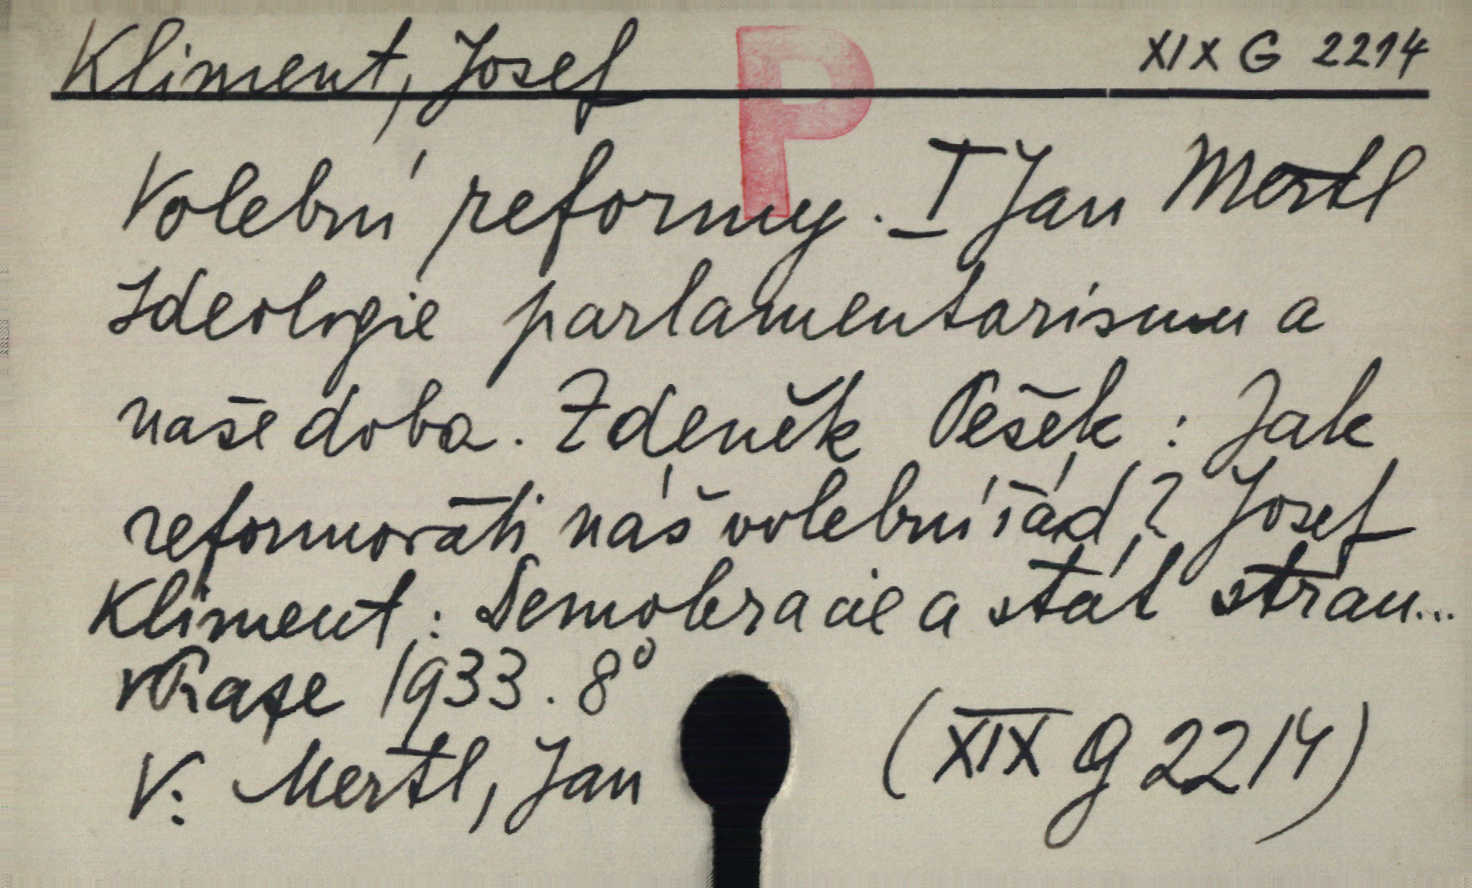 Kliment, Josef
XIX G 2214
P
Volební reformy. I Jan Mertl
Ideologie parlamentarismu a
naše doba. Zdeněk Pešek: Jak
reformovati náš volební řád? Josef
Kliment: Demokracie a stát stran...
v Praze 1933. 8°
V: Mertl, Jan
(XIX G 2214)